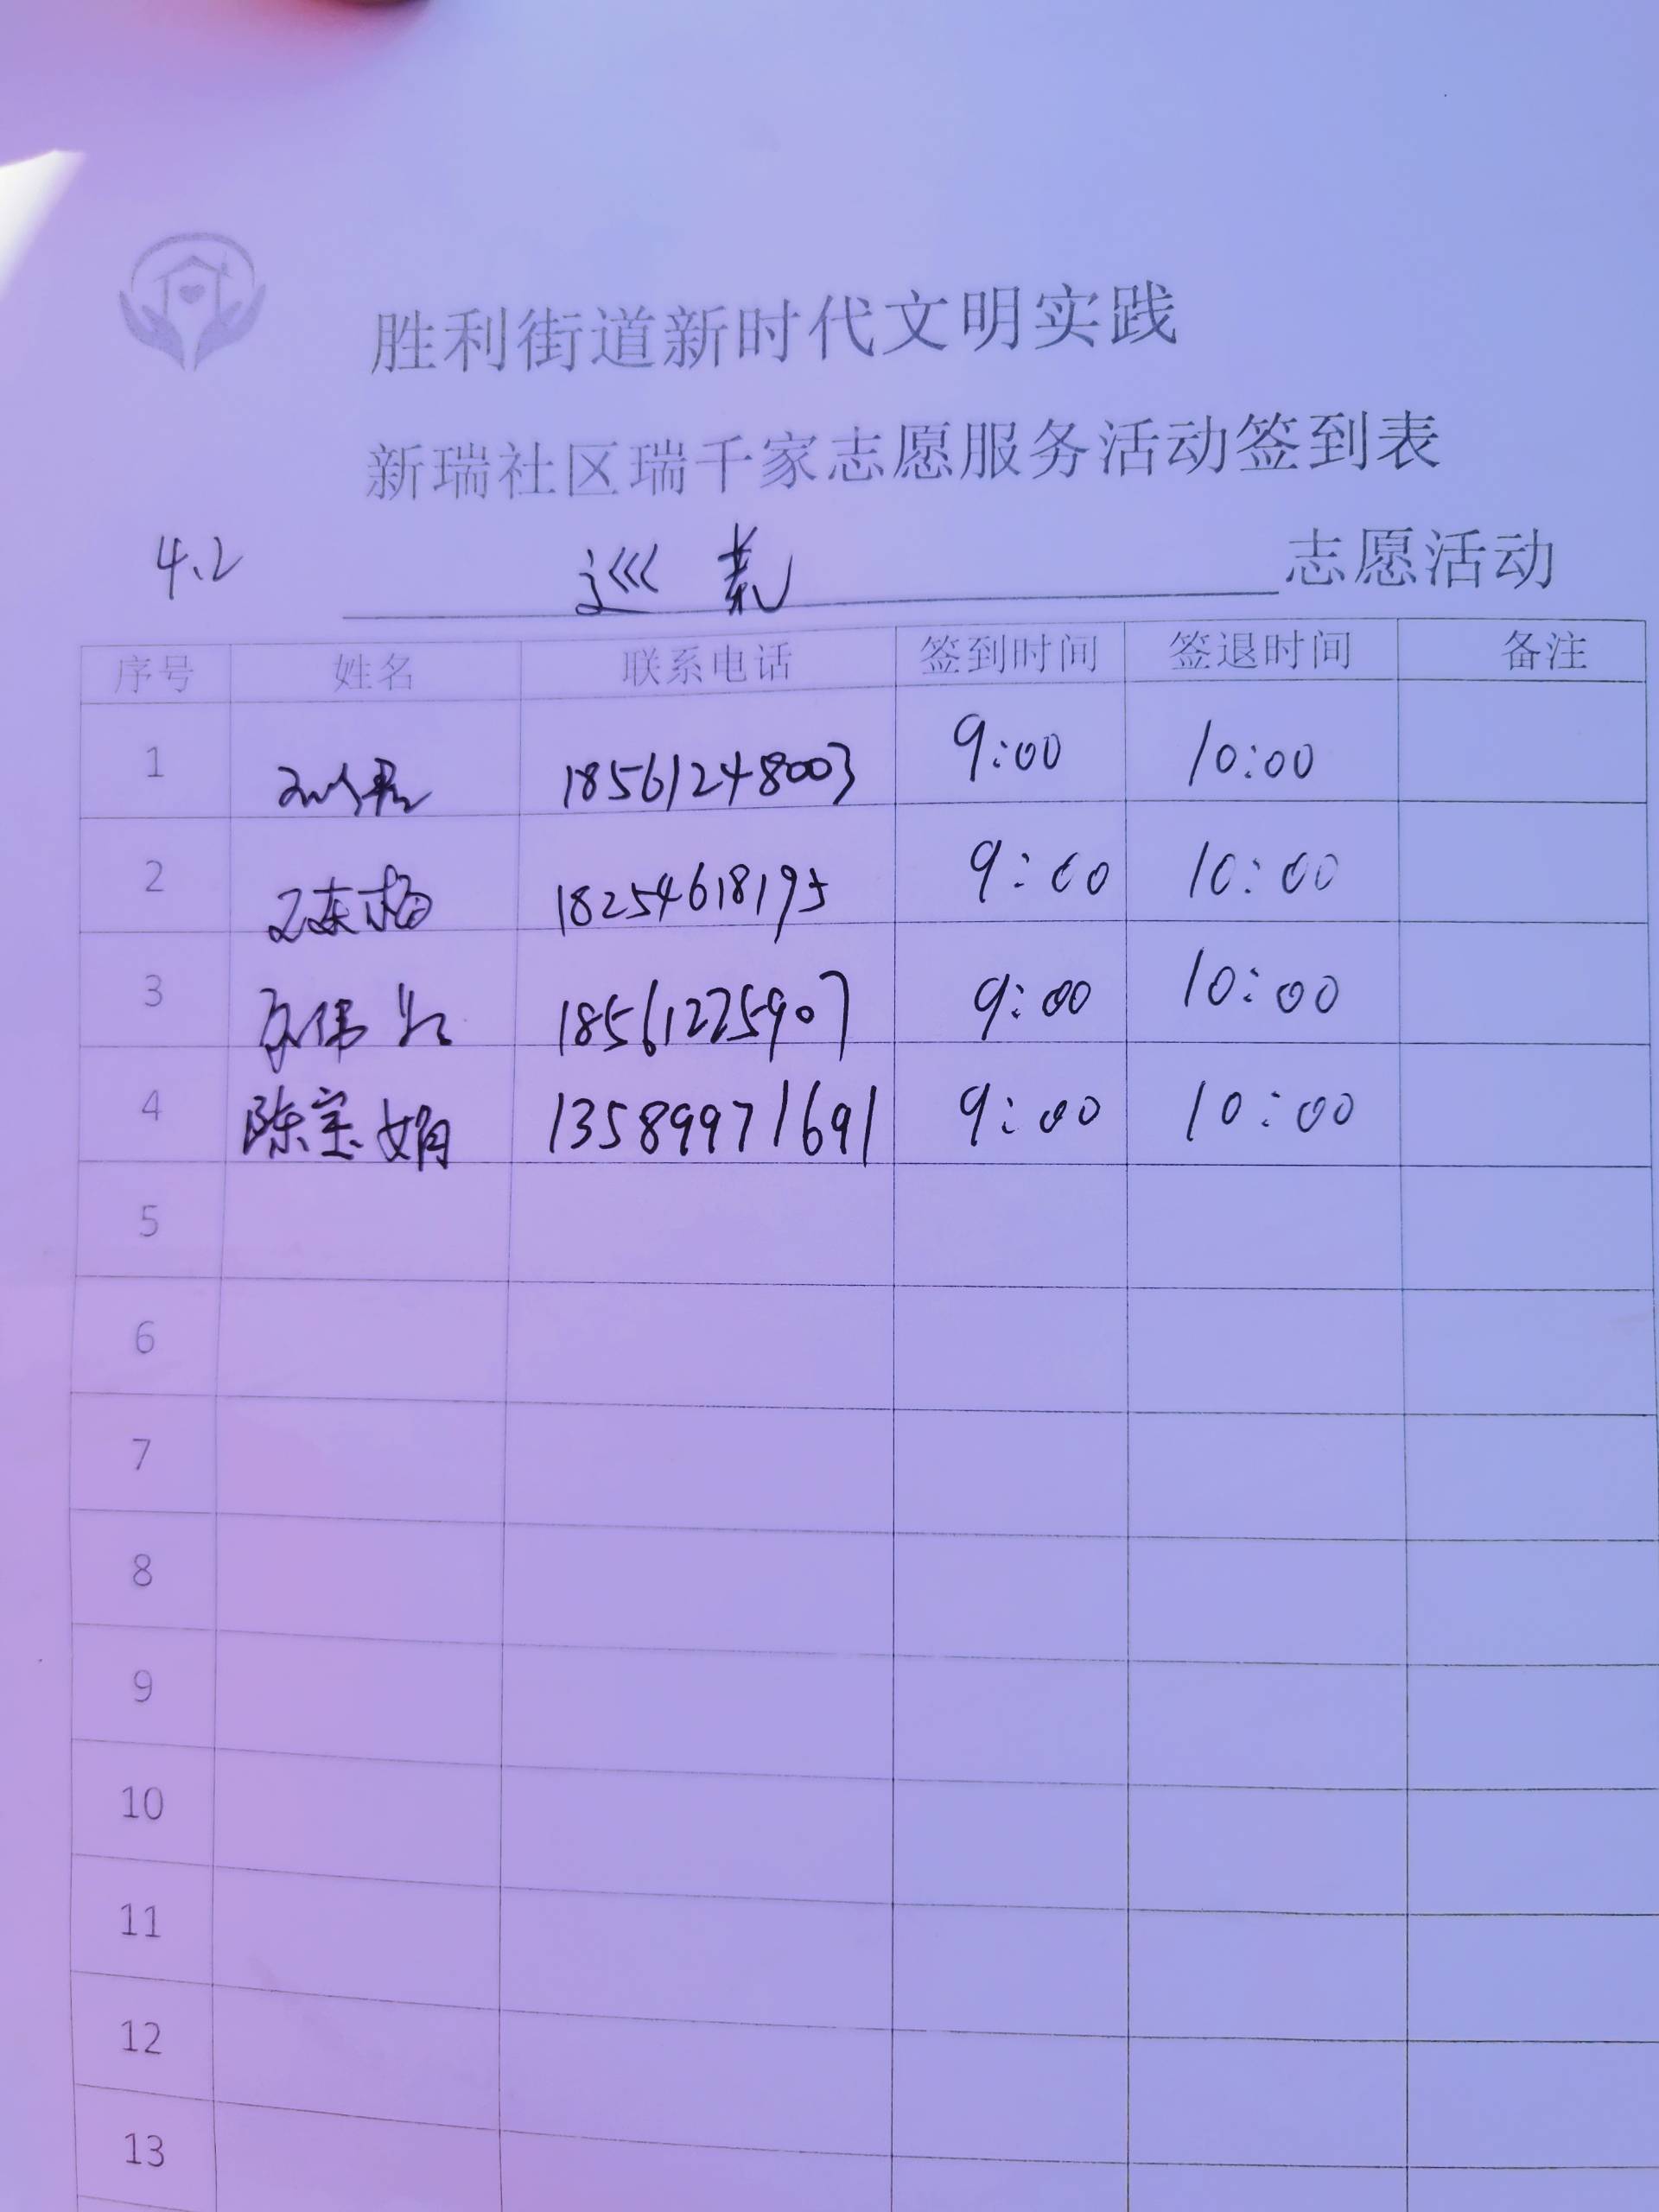 胜利街道新时代文明实践
新瑞社区瑞千家志愿服务活动签到表
4.2 巡 志愿活动
序号 姓名 联系电话 签到时间 签退时间 备注
1 18561248003 9:00 10:00
2 王冬梅 18254618195 9:00 10:00
3 18561225907 9:00 10:00
4 陈宝娟 13589971691 9:00 10:00
5
6
7
8
9
10
11
12
13